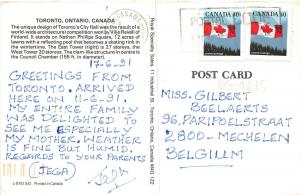 TORONTO, ONTARIO, CANADA
The unique design of Toronto's City Hall was the result of a
world-wide architectural competition won by Viljo Revell of
Finland. It is located on Nathan Phillips Square, 12 acres of
space in the centre of the city.
The East Tower (right) is 27 stores, the West Tower 20
stores. The clam-like structure in centre is
the Council Chamber (155 ft. in diameter).
17.6.91
GREETINGS FROM
TORONTO. ARRIVED
HERE ON 11-6-91.
MY ENTIRE FAMILY
WAS DELIGHTED TO
SEE ME ESPECIALLY
MY MOTHER. WEATHER
IS FINE BUT HUMID.
REGARDS TO YOUR PARENTS
JEGA
L-9751 S-D Printed in Canada
Royal Specialty Sales, 11 Industrial St., Toronto, Ontario, Canada M4G 1Z2
CANADA 40
CANADA 40
POST CARD
MISS. GILBERT
BEELAERTS
96, PARIPOELSTRAAT
2800-MECHELEN
BELGIUM